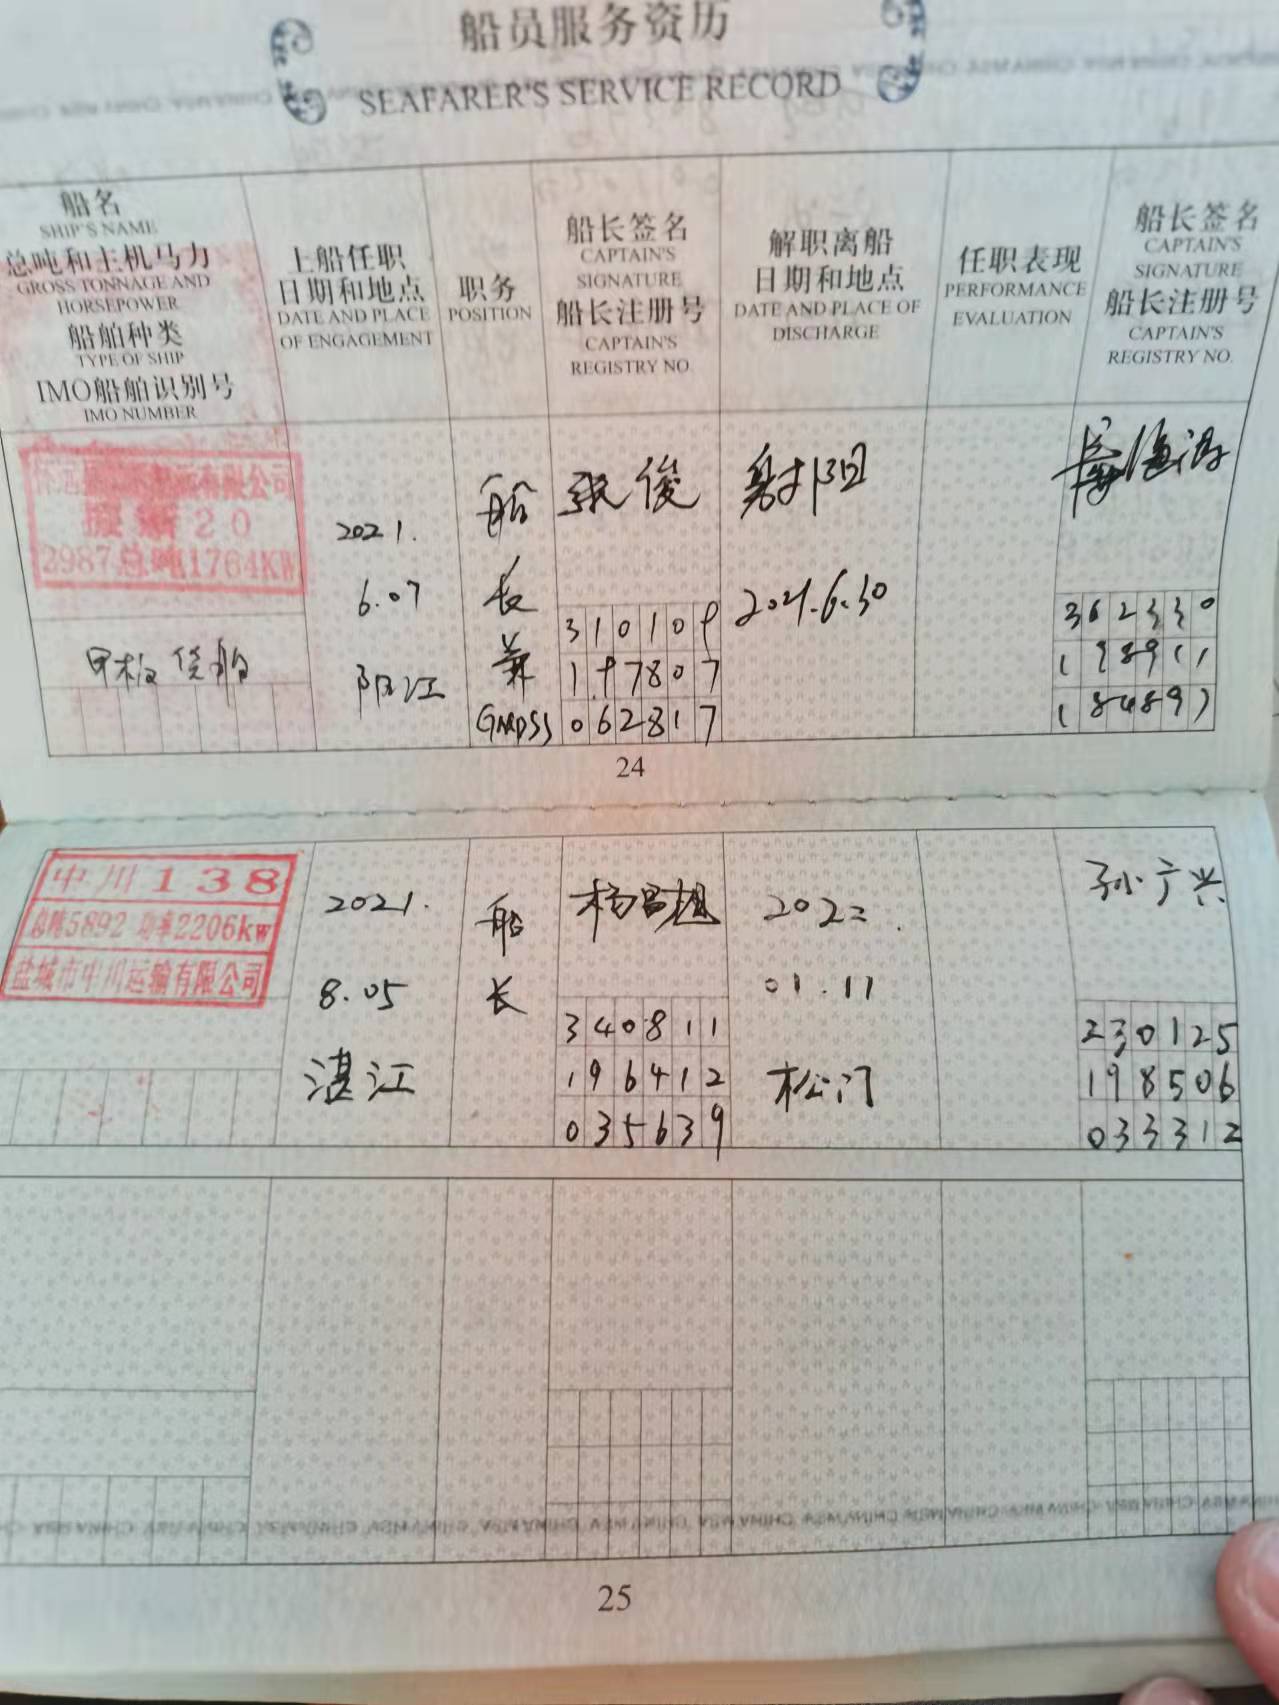 船员服务资历
SEAFARER'S SERVICE RECORD
船名
SHIP'S NAME
总吨和主机马力
GROSS TONNAGE AND
HORSEPOWER
船舶种类
TYPE OF SHIP
IMO船舶识别号
IMO NUMBER
上船任职
日期和地点
DATE AND PLACE
OF ENGAGEMENT
职务
POSITION
船长签名
CAPTAIN'S
SIGNATURE
船长注册号
CAPTAIN'S
REGISTRY NO.
解职离船
日期和地点
DATE AND PLACE OF
DISCHARGE
任职表现
PERFORMANCE
EVALUATION
船长签名
CAPTAIN'S
SIGNATURE
船长注册号
CAPTAIN'S
REGISTRY NO.
怀远 有限公司
20
2987总吨1764KW
甲板货船
2021.
6.07
阳江
船
长
兼
GMDSS
张俊
310109
197807
062817
射阳
2021.6.30
362330
198911
中川138
总吨5892 功率2206kw
盐城市中川运输有限公司
2021.
8.05
湛江
船
长
杨昌
340811
196412
035639
2022.
01.11
松门
孙广兴
230125
198506
033312
24
25